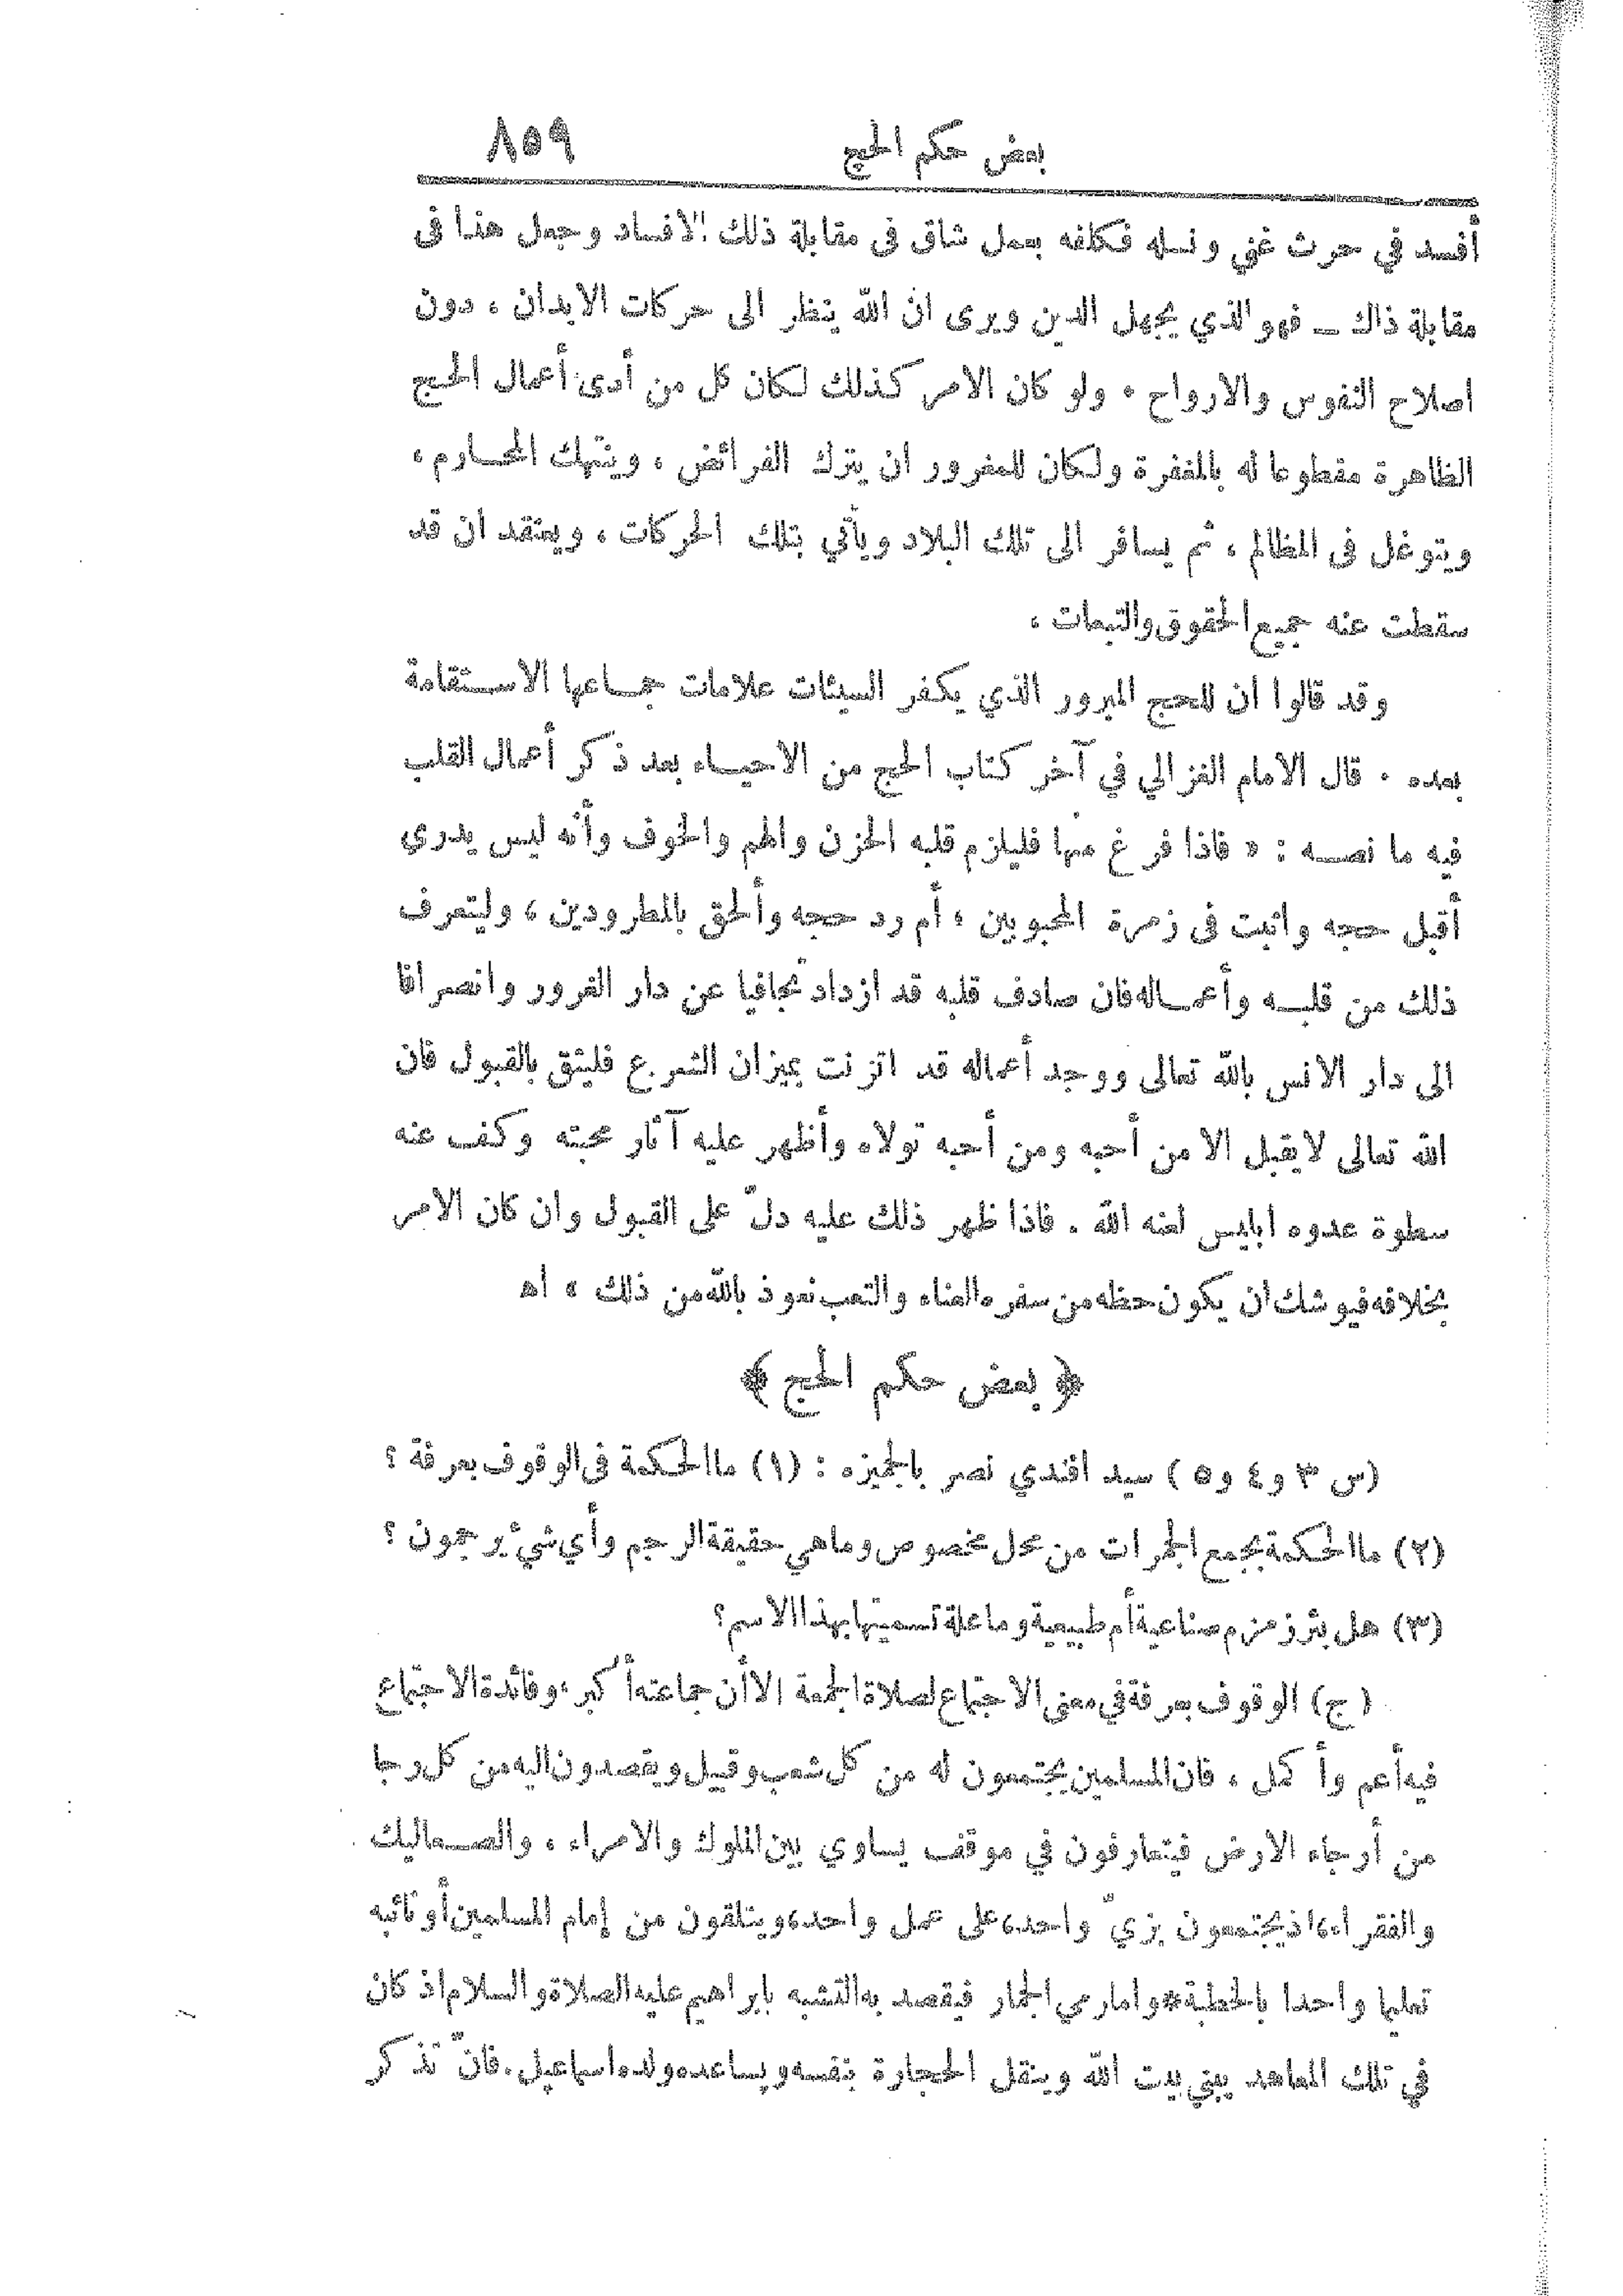 بعض حكم الحج ٨٥٩
أفسد في حرث غني ونسله فكلفه بعمل شاق فى مقابلة ذلك الافساد وجعل هذا فى
مقابلة ذاك ــ فهو الذي يجهل الدين ويرى ان الله ينظر الى حركات الابدان ، دون
اصلاح النفوس والارواح . ولو كان الامر كذلك لكان كل من أدى أعمال الحج
الظاهرة مقطوعا له بالمغفرة ولكان للمغرور ان يترك الفرائض ، وينتهك المحارم ،
ويتوغل فى المظالم ، ثم يسافر الى تلك البلاد ويأتي بتلك الحركات ، ويعتقد ان قد
سقطت عنه جميع الحقوق والتبعات ،
وقد قالوا ان للحج المبرور الذي يكفر السيئات علامات جماعها الاستقامة
بعده . قال الامام الغزالي في آخر كتاب الحج من الاحياء بعد ذكر أعمال القلب
فيه ما نصه : « فاذا فرغ منها فليلزم قلبه الحزن والهم والخوف وأنه ليس يدري
أقبل حجه واثبت فى زمرة المحبوبين ، أم رد حجه وألحق بالمطرودين ، وليتعرف
ذلك من قلبه وأعماله فان صادف قلبه قد ازداد تجافيا عن دار الغرور وانصرافا
الى دار الانس بالله تعالى ووجد أعماله قد اتزنت بميزان الشرع فليثق بالقبول فان
الله تعالى لا يقبل الا من أحبه ومن أحبه تولاه وأظهر عليه آثار محبته وكف عنه
سطوة عدوه ابليس لعنه الله . فاذا ظهر ذلك عليه دلّ على القبول وان كان الامر
بخلافه فيوشك ان يكون حظه من سفره العناء والتعب نعوذ بالله من ذلك » اه
﴿ بعض حكم الحج ﴾
(س ٣ و ٤ و ٥ ) سيد افندي نصر بالجيزه : (١) ما الحكمة فى الوقوف بعرفة ؟
(٢) ما الحكمة بجمع الجمرات من محل مخصوص وما هي حقيقة الرجم وأي شيء يرجمون ؟
(٣) هل بئر زمزم صناعية أم طبيعية وما علة تسميتها بهذا الاسم؟
(ج) الوقوف بعرفة في معنى الاجتماع لصلاة الجمعة الا أن جماعته أكبر، وفائدة الاجتماع
فيه أعم وأكمل ، فان المسلمين يجتمعون له من كل شعب وقبيل ويقصدون اليه من كل رجا
من أرجاء الارض فيتعارفون في موقف يساوي بين الملوك والامراء ، والصعاليك
والفقراء، اذ يجتمعون بزيّ واحد، على عمل واحد، ويتلقون من إمام المسلمين أو نائبه
تعليما واحدا بالخطبة* واما رمي الجمار فيقصد به التشبه بابراهيم عليه الصلاة والسلام اذ كان
في تلك المعاهد يبني بيت الله وينقل الحجارة بنفسه ويساعده ولده اسماعيل. فانّ تذكر